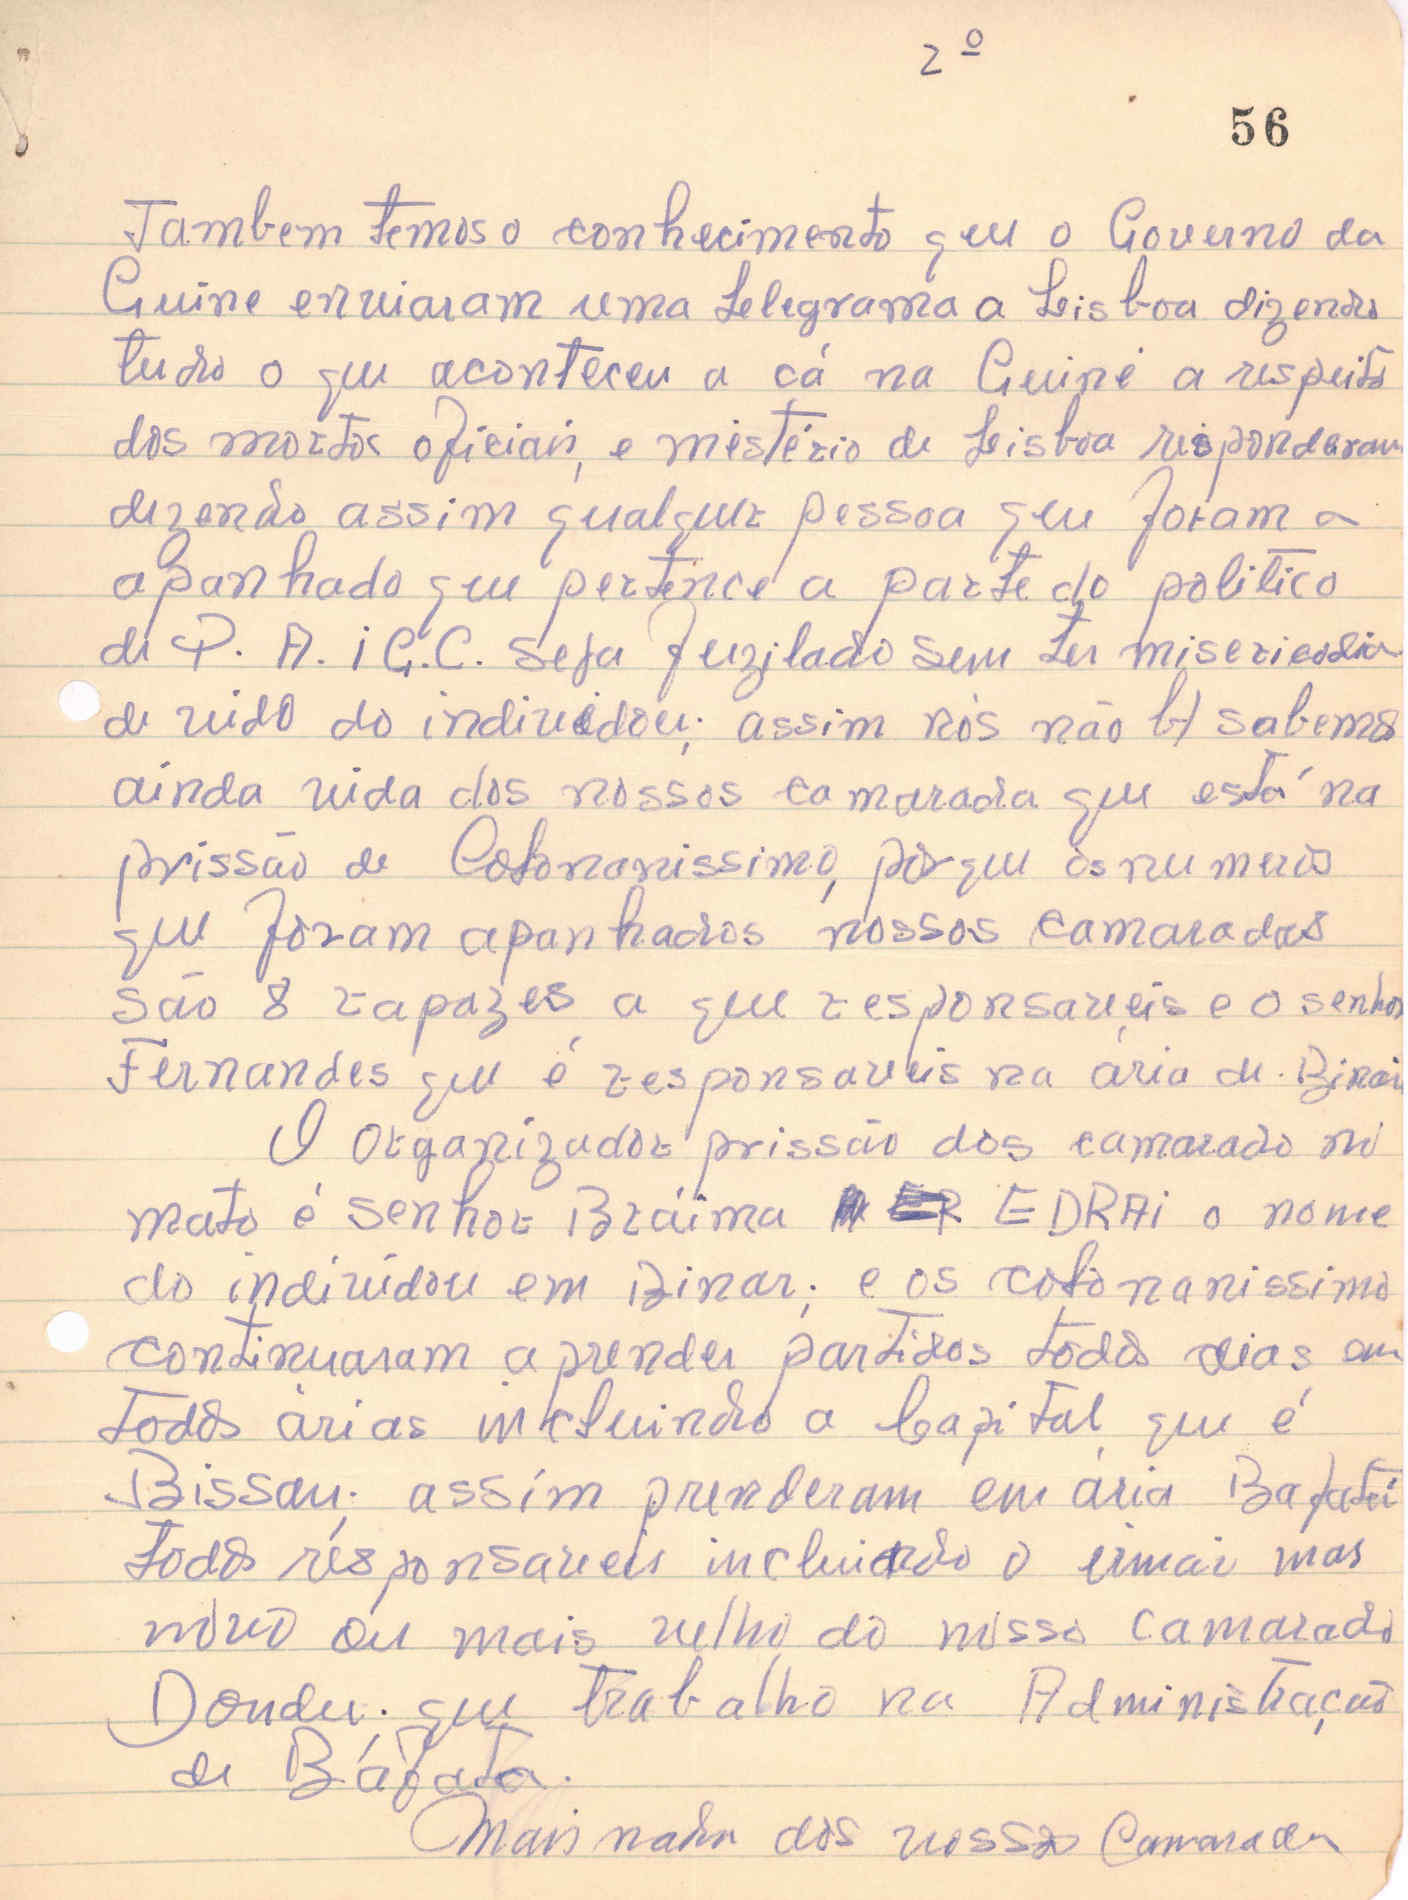 2º
56
Tambem temos o conhecimento que o Governo da
Guine enviaram uma telegrama a Lisboa dizendo
tudo o que aconteceu a cá na Guiné a respeito
dos mortos oficiais, e mistério de Lisboa responderam
dizendo assim qualquer pessoa que foram a
apanhado que pertence a parte do politico
de P. A. i G.C. seja fuzilado sem ter misericodia
de vido do individou; assim nós não sabemos
ainda vida dos nossos camarada que está na
prissão de Colonanissimo, porque os numeros
que foram apanhados nossos camaradas
são 8 rapazes a que responsaveis e o senhor
Fernandes que é responsaveis na ária de Binar
O Organizador prissão dos camarado no
mato é senhor Bráima EDRAi o nome
do individou em Binar; e os colonanissimo
continuaram aprender partidos todos dias em
todos árias incluindo a Capital que é
Bissau; assim prenderam em ária Bafatá
todos responsaveis incluindo o irmão mas
novo ou mais velho do nosso camarado
que trabalho na Administração
de Báfata.
Mais nada dos vosso Camarada